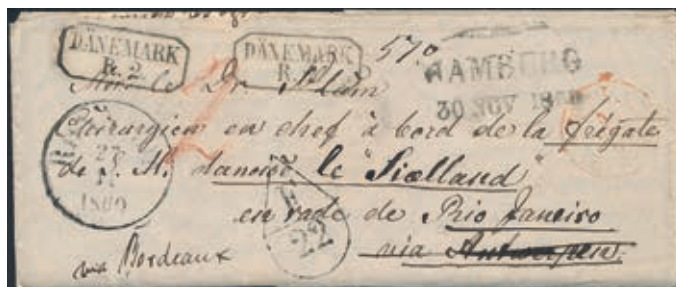 DÄNEMARK
R. 2.
DÄNEMARK
R.
570
HAMBURG
30 NOV 1860
le Dr
chirurgien en chef à bord de la frégate
de S. M. danoise le "Siælland"
en rade de Rio Janeiro
via Antwerpen.
via Bordeaux
27
11
1860
22